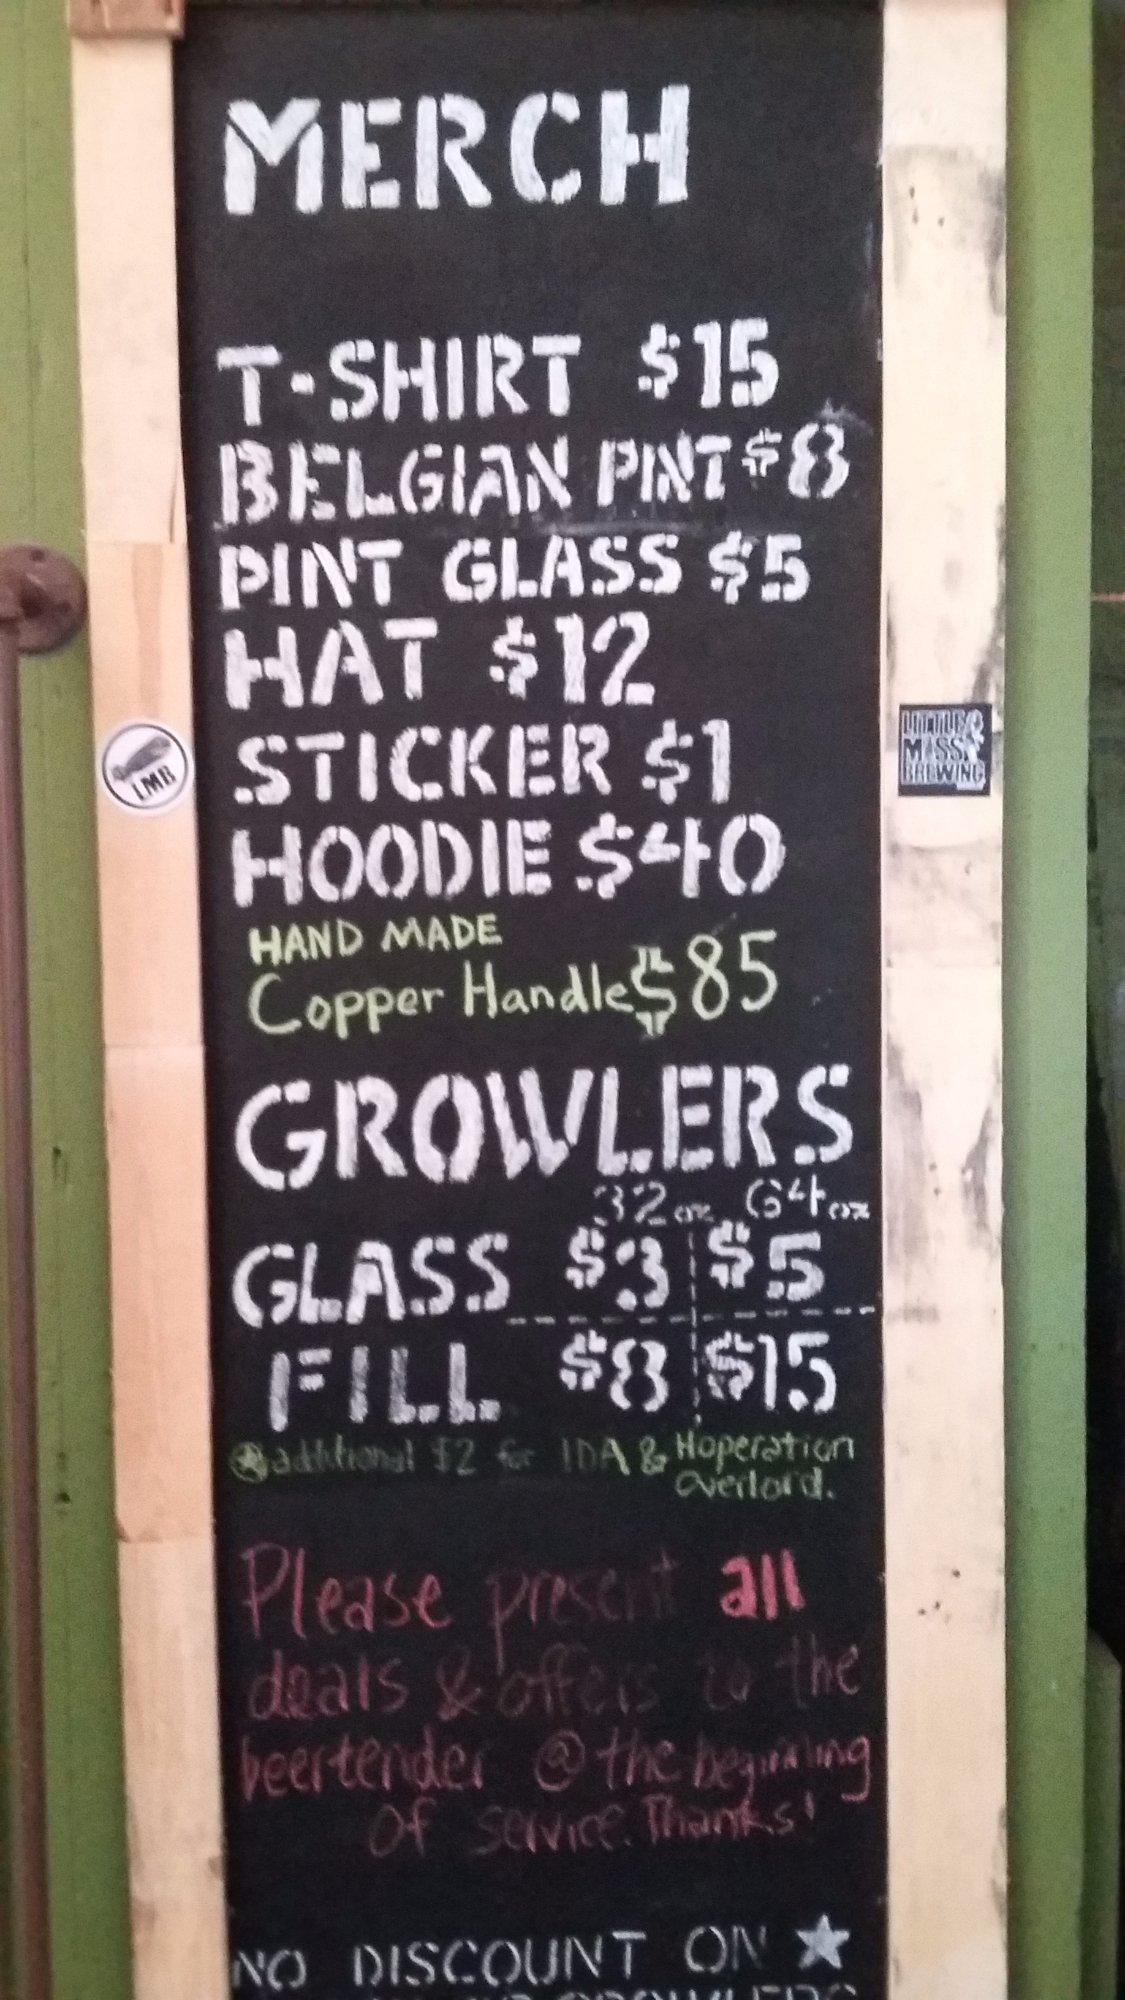 MERCH
T-SHIRT $15
BELGIAN PINT $8
PINT GLASS $5
HAT $12
STICKER $1
HOODIE $40
HAND MADE
Copper Handle $85
LMB
LITTLE
MISS
BREWING
GROWLERS
32oz 64oz
GLASS $3 $5
FILL $8 $15
additional $2 for IDA & Hoperation
Overlord.
Please present all
deals & offers to the
beertender @ the beginning
of service. Thanks!
NO DISCOUNT ON
GROWLERS